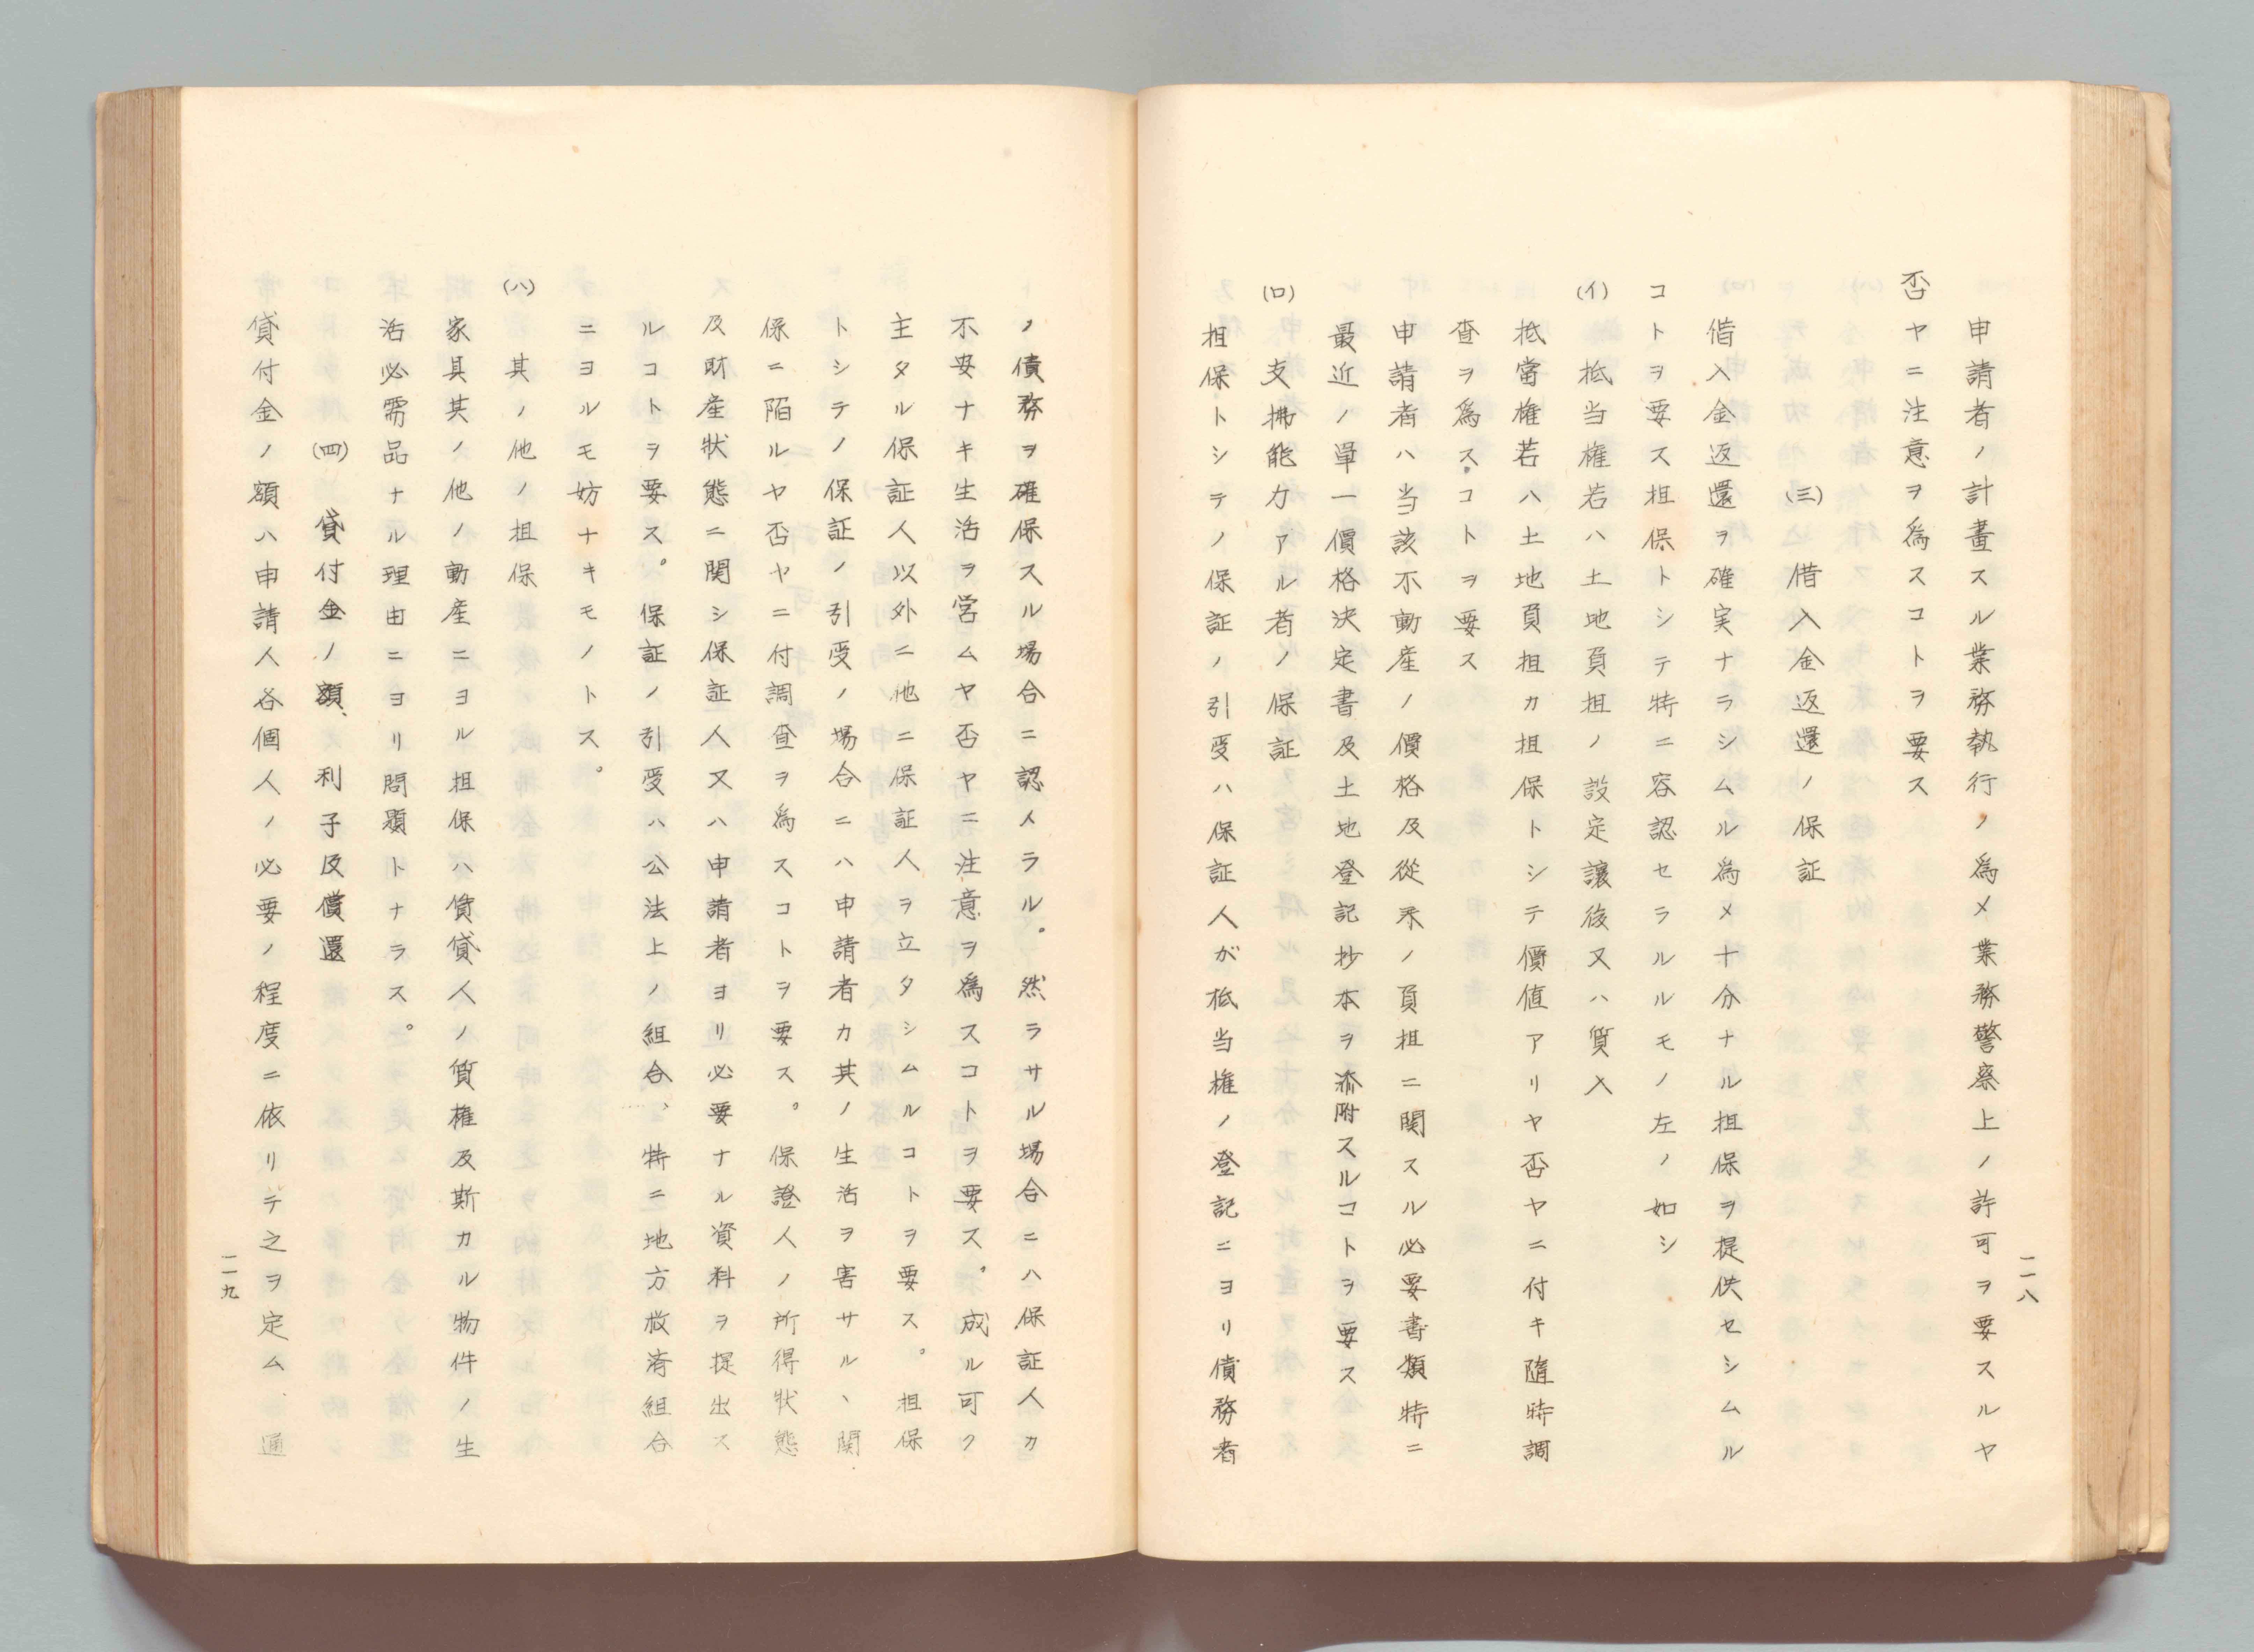 二一八
申請者ノ計畫スル業務執行ノ為メ業務警察上ノ許可ヲ要スルヤ
否ヤニ注意ヲ為スコトヲ要ス
(三) 借入金返還ノ保証
借入金返還ヲ確実ナラシムル為メ十分ナル担保ヲ提供セシムル
コトヲ要ス担保トシテ特ニ容認セラルルモノ左ノ如シ
(イ) 抵当権若ハ土地負担ノ設定譲後又ハ質入
抵當権若ハ土地負担カ担保トシテ價値アリヤ否ヤニ付キ隨時調
査ヲ為スコトヲ要ス
申請者ハ当該不動産ノ價格及從来ノ負担ニ関スル必要書類特ニ
最近ノ單一價格決定書及土地登記抄本ヲ添附スルコトヲ要ス
(ロ) 支拂能力アル者ノ保証
担保トシテノ保証ノ引受ハ保証人が抵当権ノ登記ニヨリ債務者
ノ債務ヲ確保スル場合ニ認メラル。然ラサル場合ニハ保証人カ
不安ナキ生活ヲ営ムヤ否ヤニ注意ヲ為スコトヲ要ス。成ル可ク
主タル保証人以外ニ他ニ保証人ヲ立タシムルコトヲ要ス。担保
トシテノ保証ノ引受ノ場合ニハ申請者カ其ノ生活ヲ害サルヽ関
係ニ陥ルヤ否ヤニ付調査ヲ為スコトヲ要ス。保證人ノ所得状態
及財産状態ニ関シ保証人又ハ申請者ヨリ必要ナル資料ヲ提出ス
ルコトヲ要ス。保証ノ引受ハ公法上ノ組合、特ニ地方救済組合
ニヨルモ妨ナキモノトス。
(ハ) 其ノ他ノ担保
家具其ノ他ノ動産ニヨル担保ハ賃貸人ノ質権及斯カル物件ノ生
活必需品ナル理由ニヨリ問題トナラス。
(四) 貸付金ノ額、利子及償還
貸付金ノ額ハ申請人各個人ノ必要ノ程度ニ依リテ之ヲ定ム、通
二一九